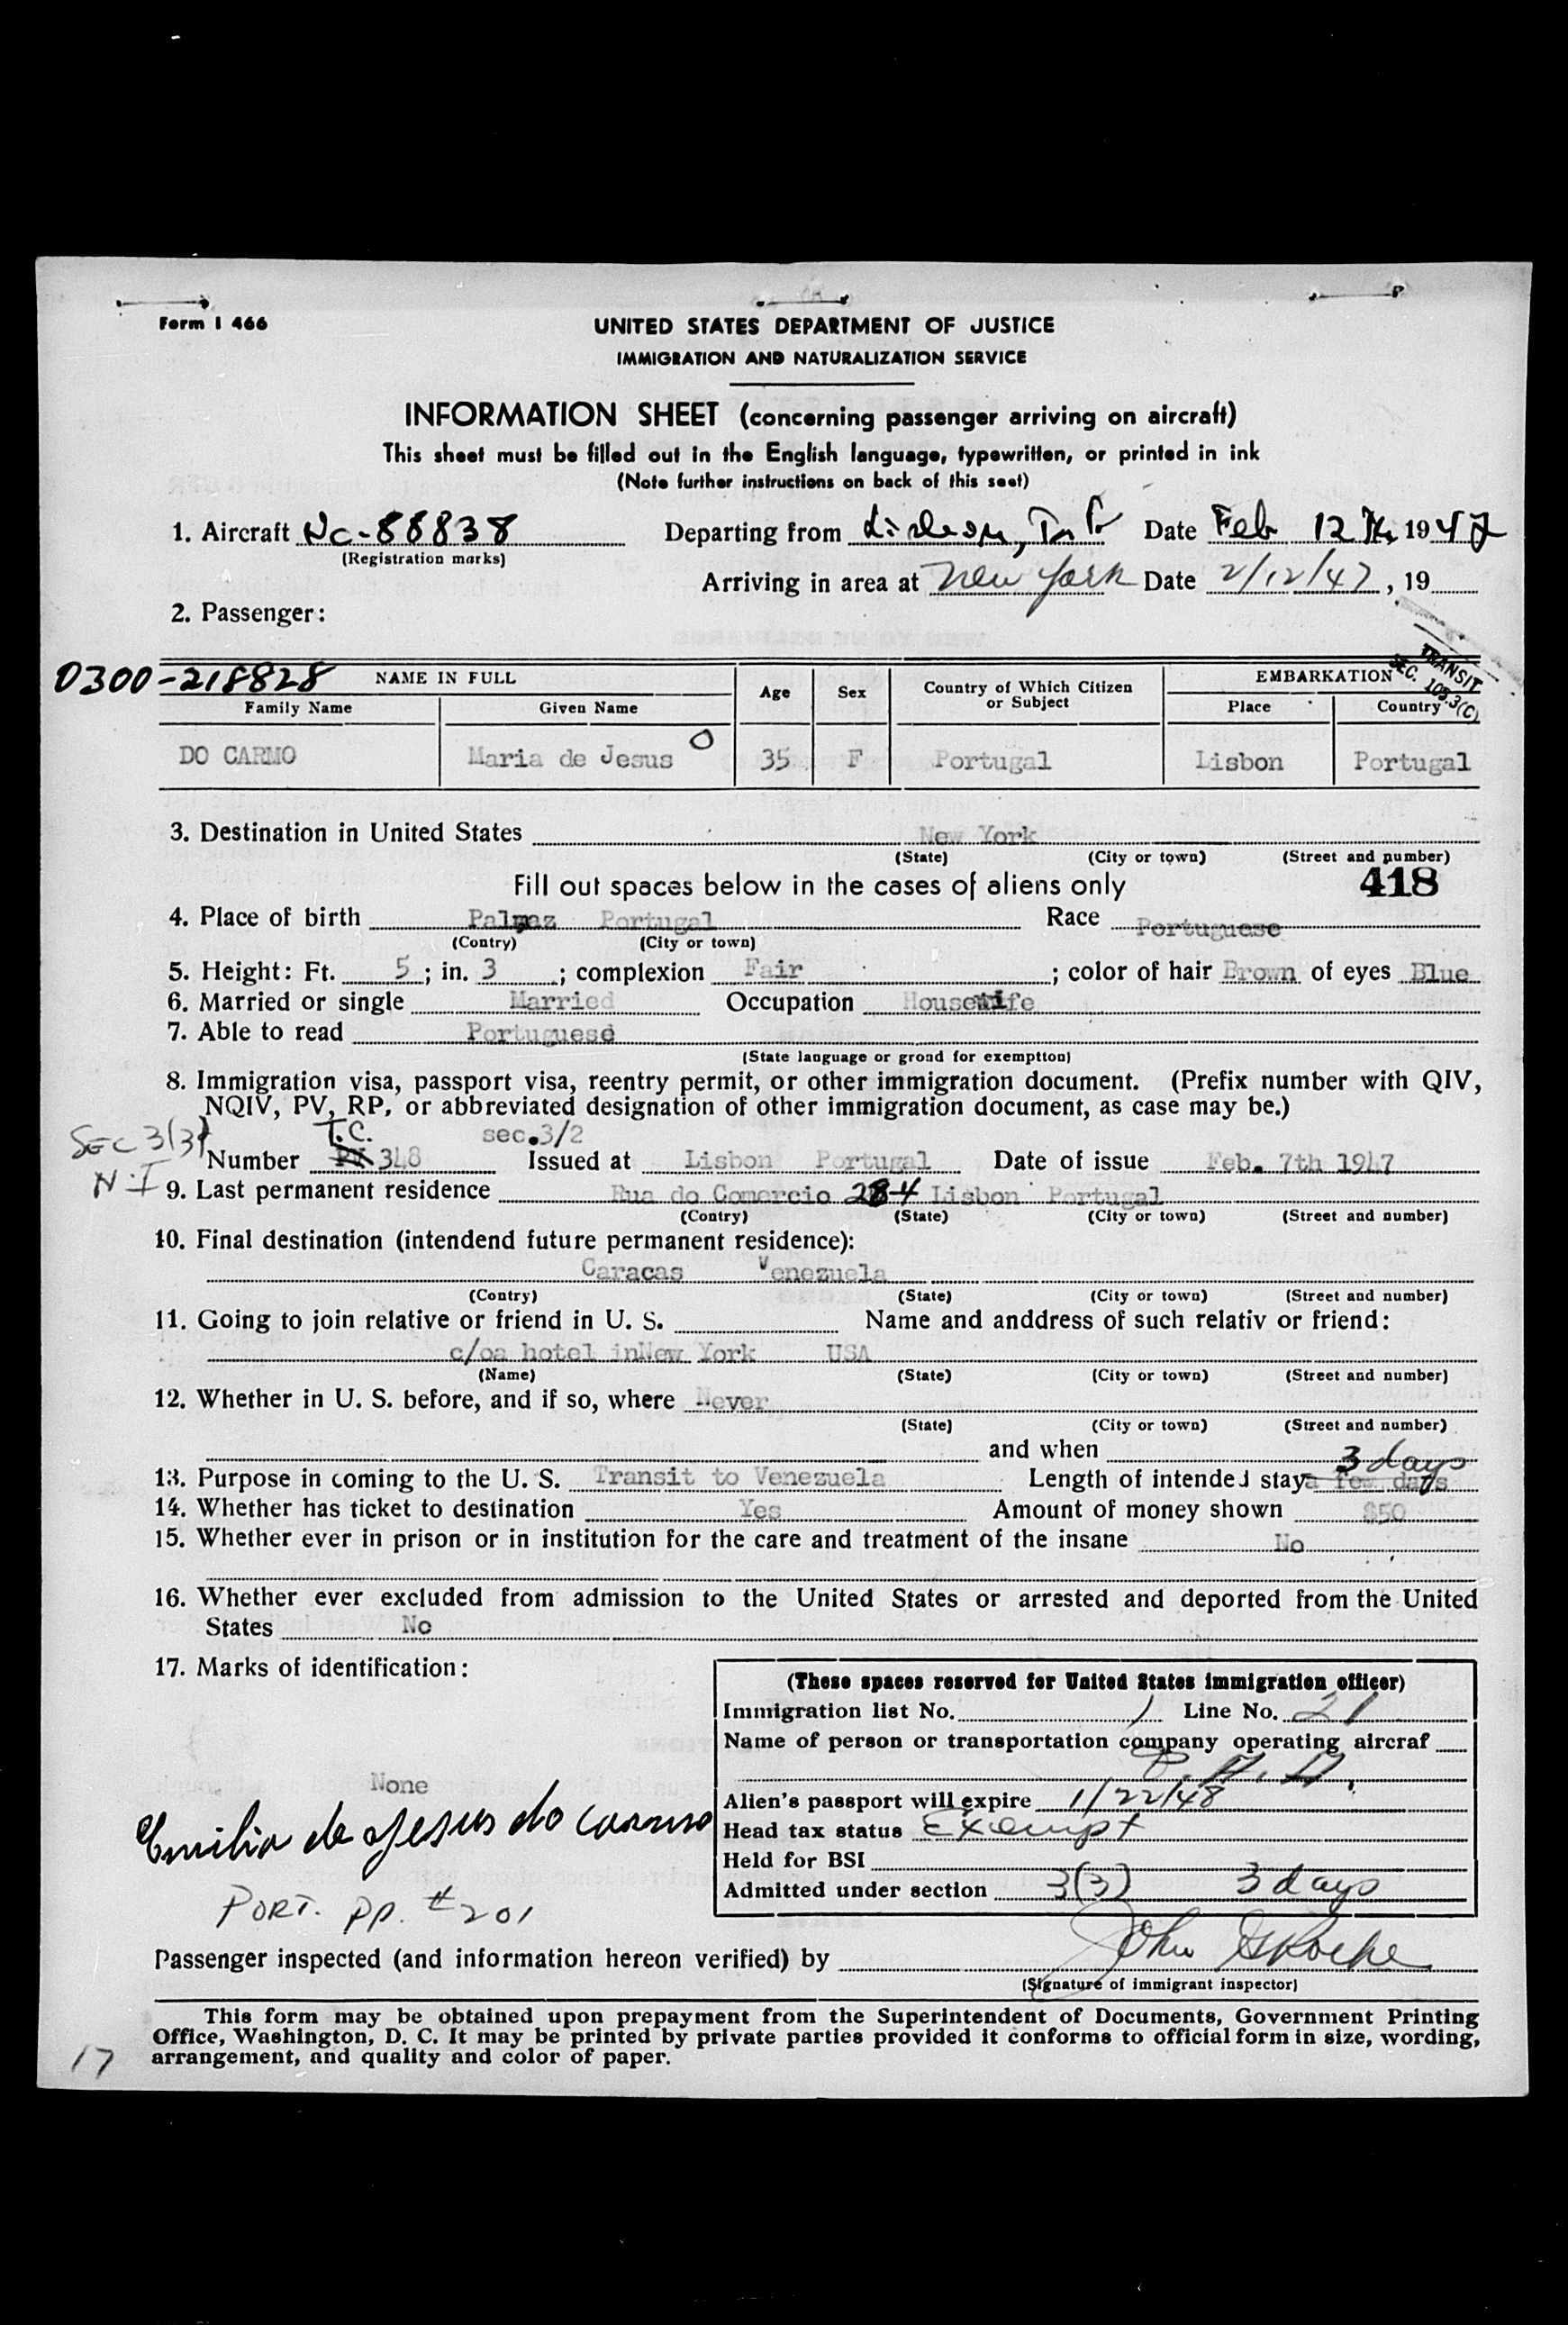 Form I 466
UNITED STATES DEPARTMENT OF JUSTICE
IMMIGRATION AND NATURALIZATION SERVICE
INFORMATION SHEET (concerning passenger arriving on aircraft)
This sheet must be filled out in the English language, typewritten, or printed in ink
(Note further instructions on back of this seet)
1. Aircraft Nc-88838 Departing from Date Feb 12 Th, 1947
(Registration marks)
Arriving in area at New York Date 2/12/47, 19
2. Passenger:
TRANSIT
SEC. 103.3(C)
0300-218828 NAME IN FULL Age Sex Country of Which Citizen or Subject EMBARKATION
Family Name Given Name Place Country
DO CARMO Maria de Jesus O 35 F Portugal Lisbon Portugal
3. Destination in United States New York
(State) (City or town) (Street and number)
Fill out spaces below in the cases of aliens only 418
4. Place of birth Palmaz Portugal Race Portuguese
(Contry) (City or town)
5. Height: Ft. 5; in. 3; complexion Fair; color of hair Brown of eyes Blue
6. Married or single Married Occupation Housewife
7. Able to read Portuguese
(State language or grond for exemptton)
8. Immigration visa, passport visa, reentry permit, or other immigration document. (Prefix number with QIV,
NQIV, PV, RP, or abbreviated designation of other immigration document, as case may be.)
SEC 3(3) T.C. sec.3/2
Number PV 348 Issued at Lisbon Portugal Date of issue Feb. 7th 1947
N.I 9. Last permanent residence Rua do Comercio 284 Lisbon Portugal
(Contry) (State) (City or town) (Street and number)
10. Final destination (intendend future permanent residence):
Caracas Venezuela
(Contry) (State) (City or town) (Street and number)
11. Going to join relative or friend in U. S. Name and anddress of such relativ or friend:
c/oa hotel inNew York USA
(Name) (State) (City or town) (Street and number)
12. Whether in U. S. before, and if so, where Never
(State) (City or town) (Street and number)
and when
3 days
13. Purpose in coming to the U. S. Transit to Venezuela Length of intended stay a few days
14. Whether has ticket to destination Yes Amount of money shown $50
15. Whether ever in prison or in institution for the care and treatment of the insane No
16. Whether ever excluded from admission to the United States or arrested and deported from the United
States No
17. Marks of identification:
None
Emilia de Jesus do Carmo
PORT. PP. #201
(These spaces reserved for United States immigration officer)
Immigration list No. 1 Line No. 21
Name of person or transportation company operating aircraf
P.A.A.
Alien's passport will expire 1/22/48
Head tax status Exempt
Held for BSI
Admitted under section 3(3) 3 days
Passenger inspected (and information hereon verified) by John
(Signature of immigrant inspector)
This form may be obtained upon prepayment from the Superintendent of Documents, Government Printing
Office, Washington, D. C. It may be printed by private parties provided it conforms to official form in size, wording,
arrangement, and quality and color of paper.
17